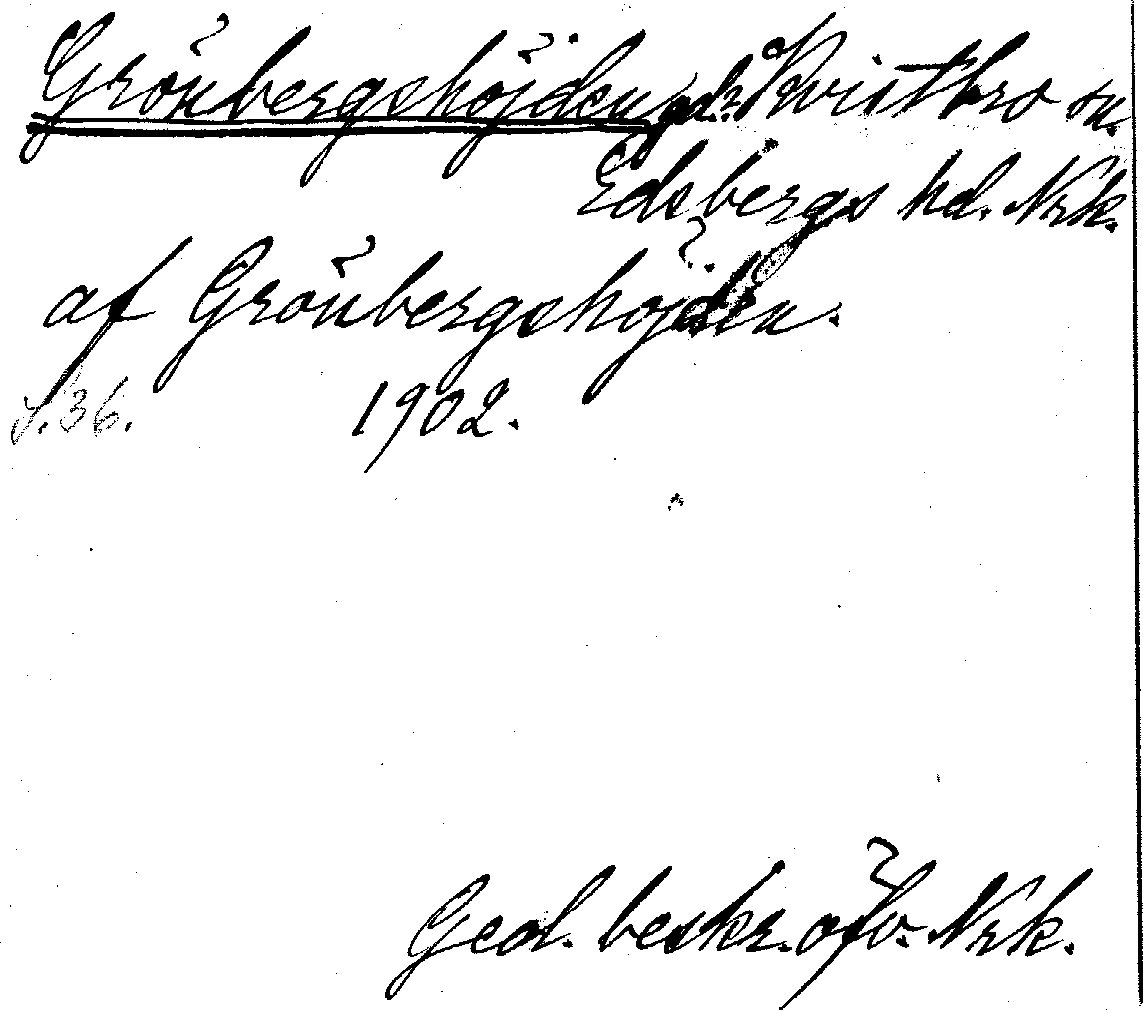 Grönbergshöjden, gd: Kvistbro sn.
Edsbergs hd. Nrk.
af Grönbergshöjden.
s. 36. 1902.
Geol. beskr. öfv. Nrk.